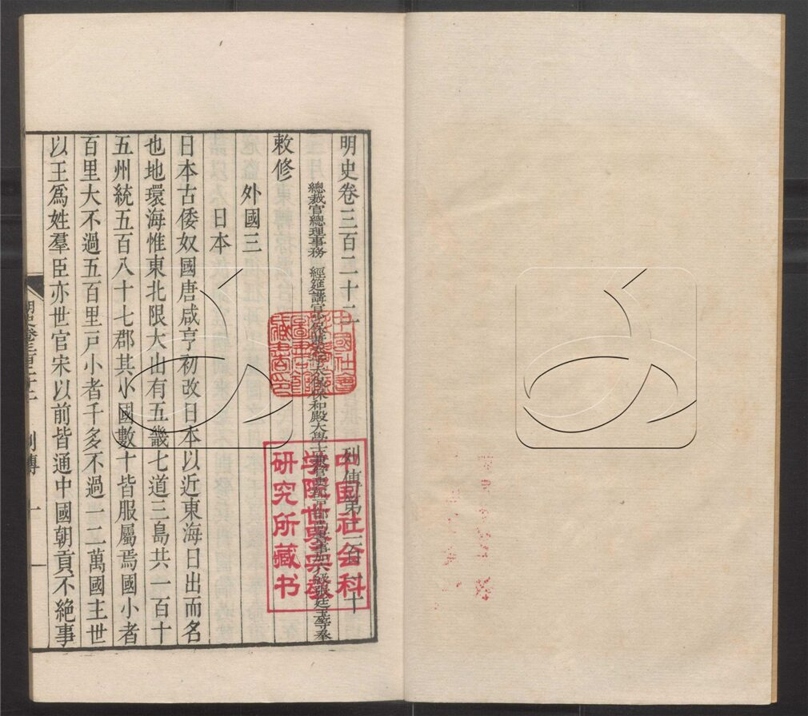 明史卷三百二十二
列傳第二百十
總裁官總理事務 經筵講官少保兼太子太保保和殿大學士
敕修
外國三
日本
日本古倭奴國唐咸亨初改日本以近東海日出而名
也地環海惟東北限大山有五畿七道三島共一百十
五州統五百八十七郡其小國數十皆服屬焉國小者
百里大不過五百里戸小者千多不過一二萬國主世
以王爲姓羣臣亦世官宋以前皆通中國朝貢不絶事
明史卷三百二十二 列傳 一
中國社會
中国社会科
学院世界宗教
研究所藏书